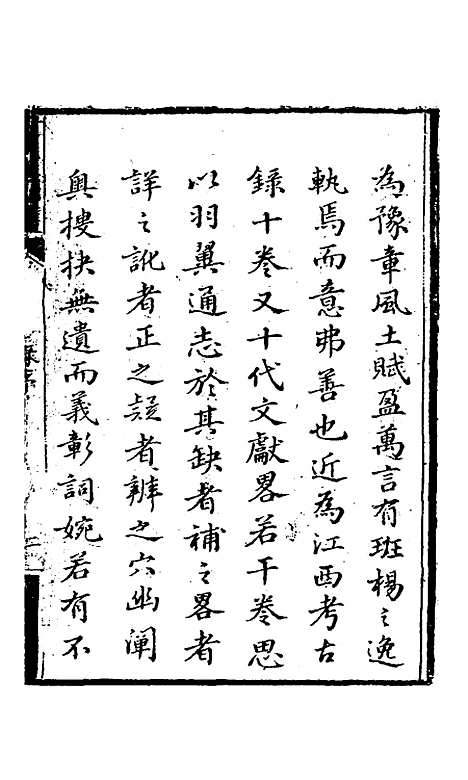 為豫章風土賦盈萬言有班楊之逸
軌焉而意弗善也近為江西考古
錄十卷又十代文獻畧若干卷思
以羽翼通志於其缺者補之畧者
詳之訛者正之疑者辨之穴幽闡
奧搜抉無遺而義彰詞婉若有不